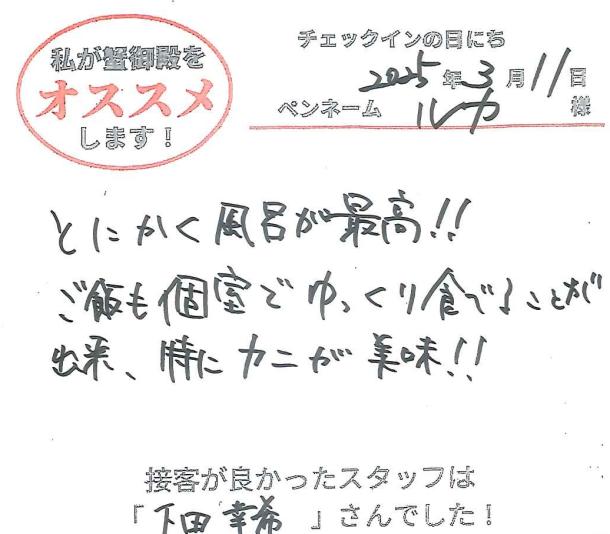 私が蟹御殿を
オススメ
します！
チェックインの日にち
2025年3月11日
ペンネーム ルカ 様
とにかく風呂が最高!!
ご飯も個室でゆっくり食べることが
出来、特にカニが美味!!
接客が良かったスタッフは
「下田 幸希 」さんでした！